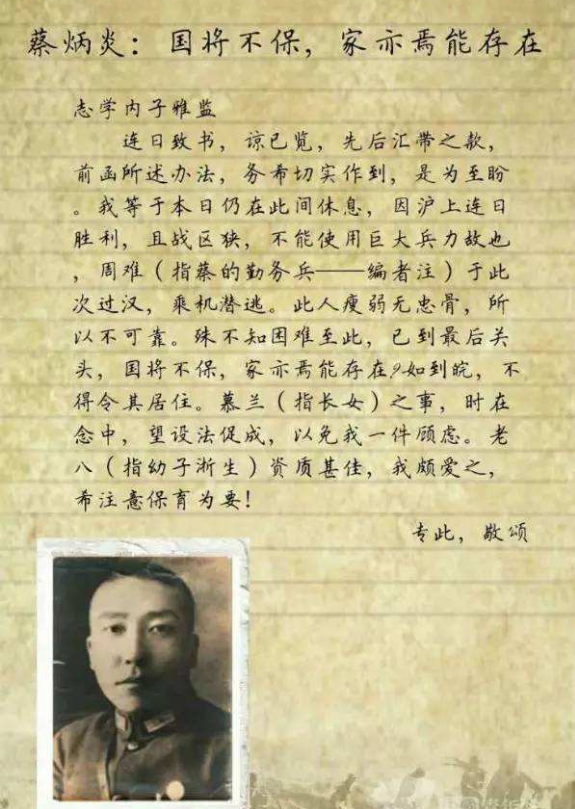 蔡炳炎：国将不保，家亦焉能存在
志学内子雅监
连日致书，谅已览，先后汇带之款，
前函所述办法，务希切实作到，是为至盼
。我等于本日仍在此间休息，因沪上连日
胜利，且战区狭，不能使用巨大兵力故也
，周难（指蔡的勤务兵——编者注）于此
次过汉，乘机潜逃。此人瘦弱无忠骨，所
以不可靠。殊不知困难至此，已到最后关
头，国将不保，家亦焉能存在？如到皖，不
得令其居住。慕兰（指长女）之事，时在
念中，望设法促成，以免我一件顾虑。老
八（指幼子浙生）资质甚佳，我颇爱之，
希注意保育为要！
专此，敬颂